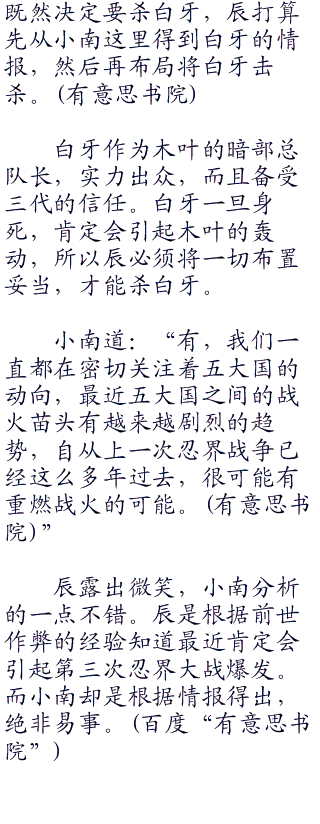 既然决定要杀白牙，辰打算
先从小南这里得到白牙的情
报，然后再布局将白牙击
杀。(有意思书院)
白牙作为木叶的暗部总
队长，实力出众，而且备受
三代的信任。白牙一旦身
死，肯定会引起木叶的轰
动，所以辰必须将一切布置
妥当，才能杀白牙。
小南道：“有，我们一
直都在密切关注着五大国的
动向，最近五大国之间的战
火苗头有越来越剧烈的趋
势，自从上一次忍界战争已
经这么多年过去，很可能有
重燃战火的可能。(有意思书
院)”
辰露出微笑，小南分析
的一点不错。辰是根据前世
作弊的经验知道最近肯定会
引起第三次忍界大战爆发。
而小南却是根据情报得出，
绝非易事。(百度“有意思书
院”)